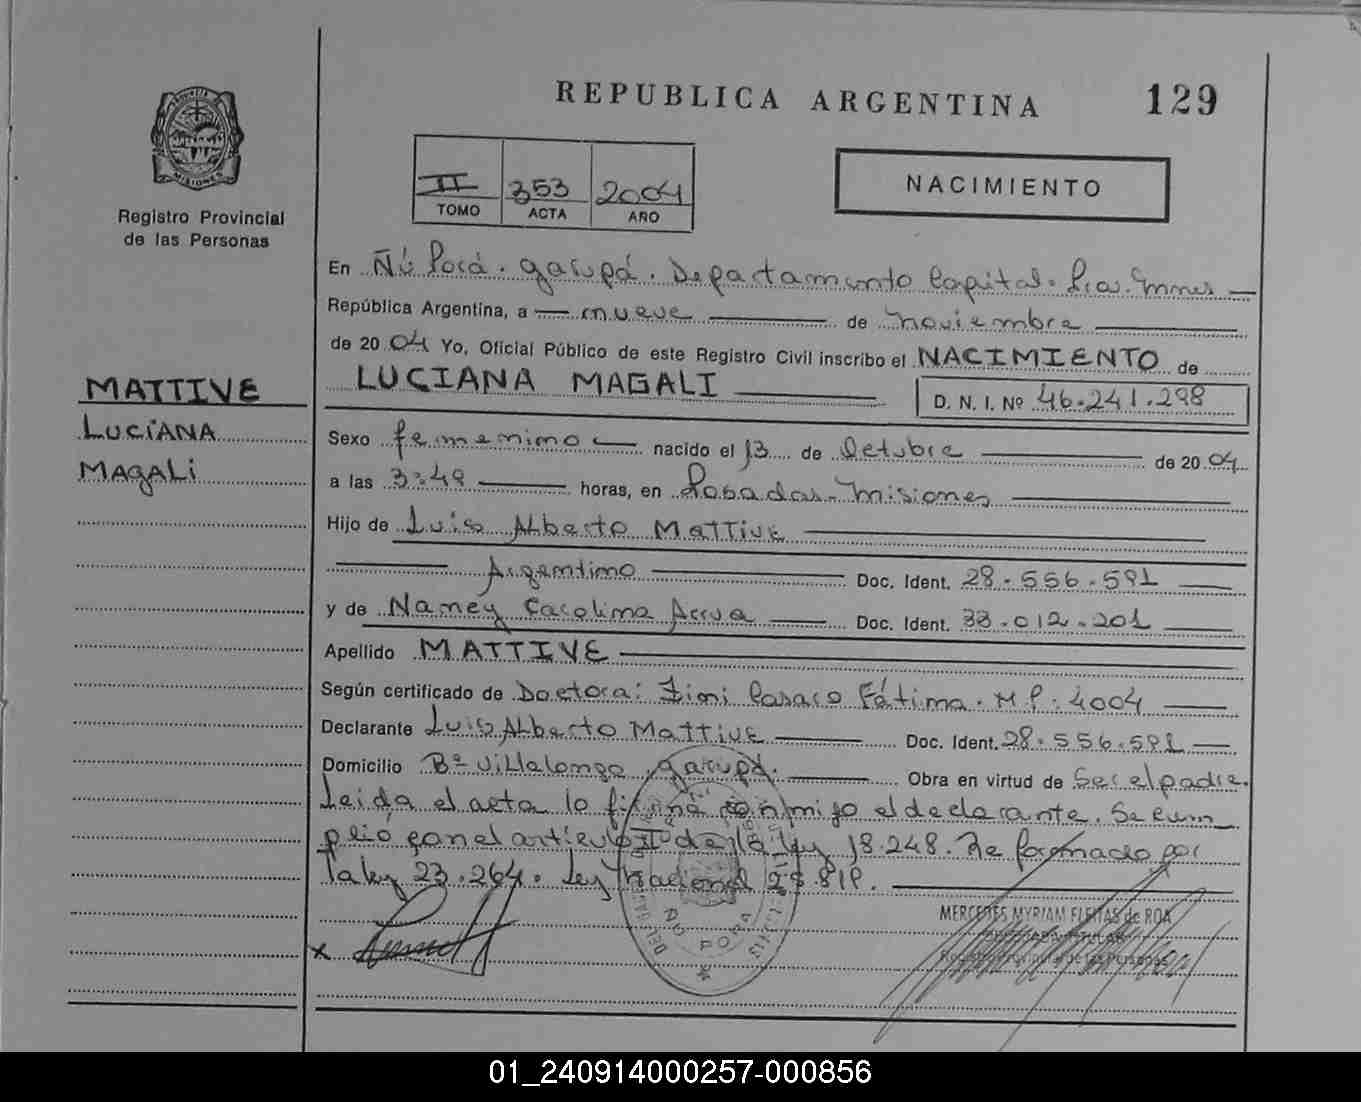 REPUBLICA ARGENTINA
129
PROVINCIA DE
MISIONES
Registro Provincial
de las Personas
II 353 2004
TOMO ACTA AÑO
NACIMIENTO
MATTIVE
LUCIANA
MAGALI
En Ñú Porá. garupá. Departamento Capital. Pcia. Mnes
República Argentina, a nueve de noviembre
de 2004 Yo, Oficial Público de este Registro Civil inscribo el NACIMIENTO de
LUCIANA MAGALI
D. N. I. Nº 46.241.298
Sexo femenino nacido el 13 de Octubre de 2004
a las 3:49 horas, en Posadas-Misiones
Hijo de Luis Alberto MATTIVE
Argentino Doc. Ident. 28.556.591
y de Nancy Carolina Arrua Doc. Ident. 33.012.201
Apellido MATTIVE
Según certificado de Doctora: Fátima. M.P: 4004
Declarante Luis Alberto MATTIVE Doc. Ident. 28.556.591
Domicilio Bº Villalonga garupá. Obra en virtud de Ser el padre.
Leida el acta la firma conmigo el declarante. Se cum
plió con el artículo IIº de la ley 18.248. Re formado por
la ley 23.264. Ley Nacional
ÑU PORA
MERCEDES MYRIAM FLEITAS de ROA
Registro Provincial de las Personas
01_240914000257-000856